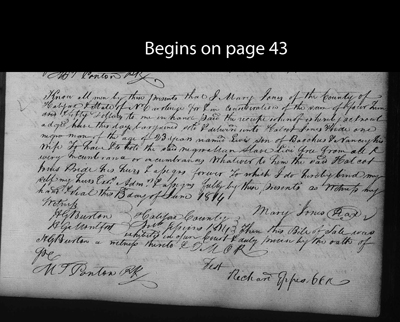 Begins on page 43
M T Ponton P R
Know all men by these presents that I Mary Jones of the County of
Halifax & State of N Carolina for & in consideration of the sum of four hun
and fifty dollars to me in hand paid the receipt whereof is hereby
have this day bargained sold & delivered unto Halcot Jones Pride one
negro man of the age of 23 years named son of Bacchus & Nancy his
wife To have & to hold the said negro man slave free from all &
every incumbrance or incumbrances Whatever to him the said Halcot
Jones Pride his heirs & assigns forever To which I do hereby bind my
self my heirs Exrs Admrs & assigns fully by these presents as Witness my
hand & seal this day of June 1814
Witness
H G Burton
Mary Jones Seal
Halifax County
Sessions 1814 Then this Bill of Sale was
exhibited in open Court & duly proven by the oath of
H G Burton a witness thereto & O R
Test
M T Ponton P R
Richard Eppes C C R